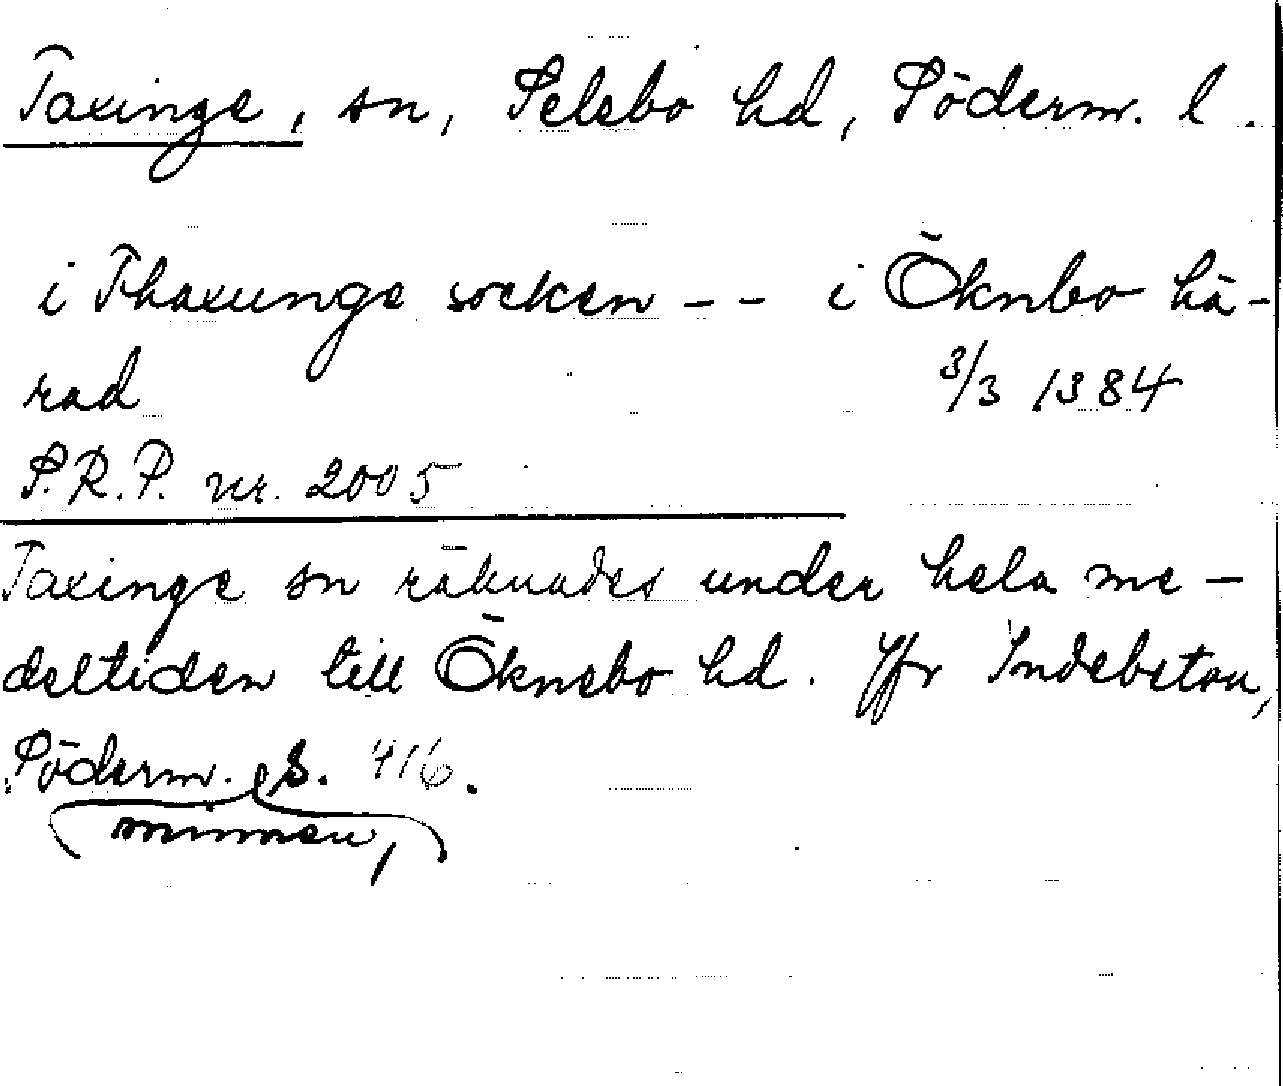 Taxinge, sn, Selebo hd, Söderm. l.
i Thaxunge socken -- i Öknbo hä-
rad 3/3 1384
S.R.P. nr. 2005
Taxinge sn räknades under hela me-
deltiden till Öknebo hd. Jfr Indebetou,
Söderm. s. 416.
minnen,